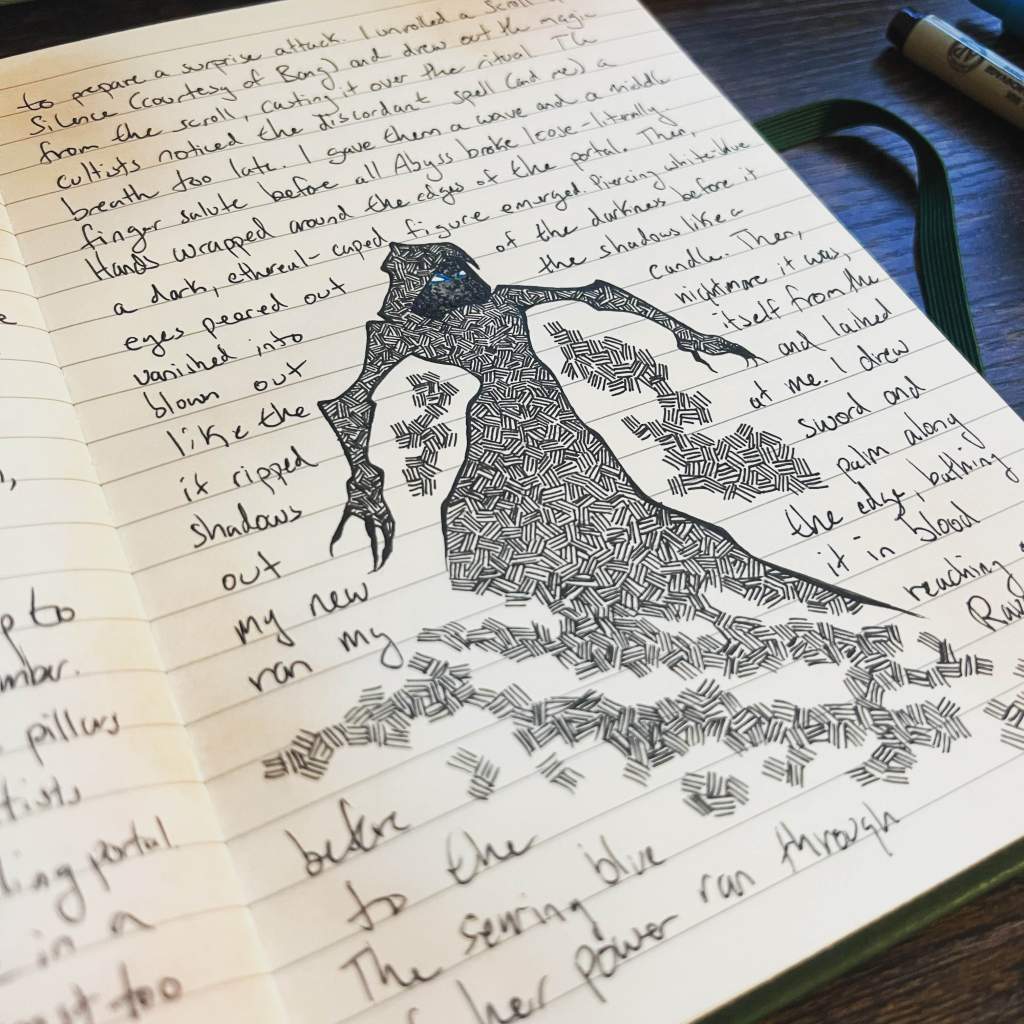 pillars
portal
in a
too
to prepare a surprise attack. I unrolled a Scroll
Silence (courtesy of Bang) and drew out the magic
from the scroll, casting it over the ritual. The
cultists noticed the discordant spell (and me) a
breath too late. I gave them a wave and a middle
finger salute before all Abyss broke loose-literally.
Hands wrapped around the edges of the portal. Then,
a dark, ethereal-caped figure emerged. Piercing white-blue
eyes peered out of the darkness before it
vanished into the shadows like a
blown out candle. Then,
like the nightmare it was,
it ripped itself from the
shadows and lashed
out at me. I drew
my new sword and
ran my palm along
the edge, bathing
it in blood
before reaching
to the
The searing blue
her power ran through